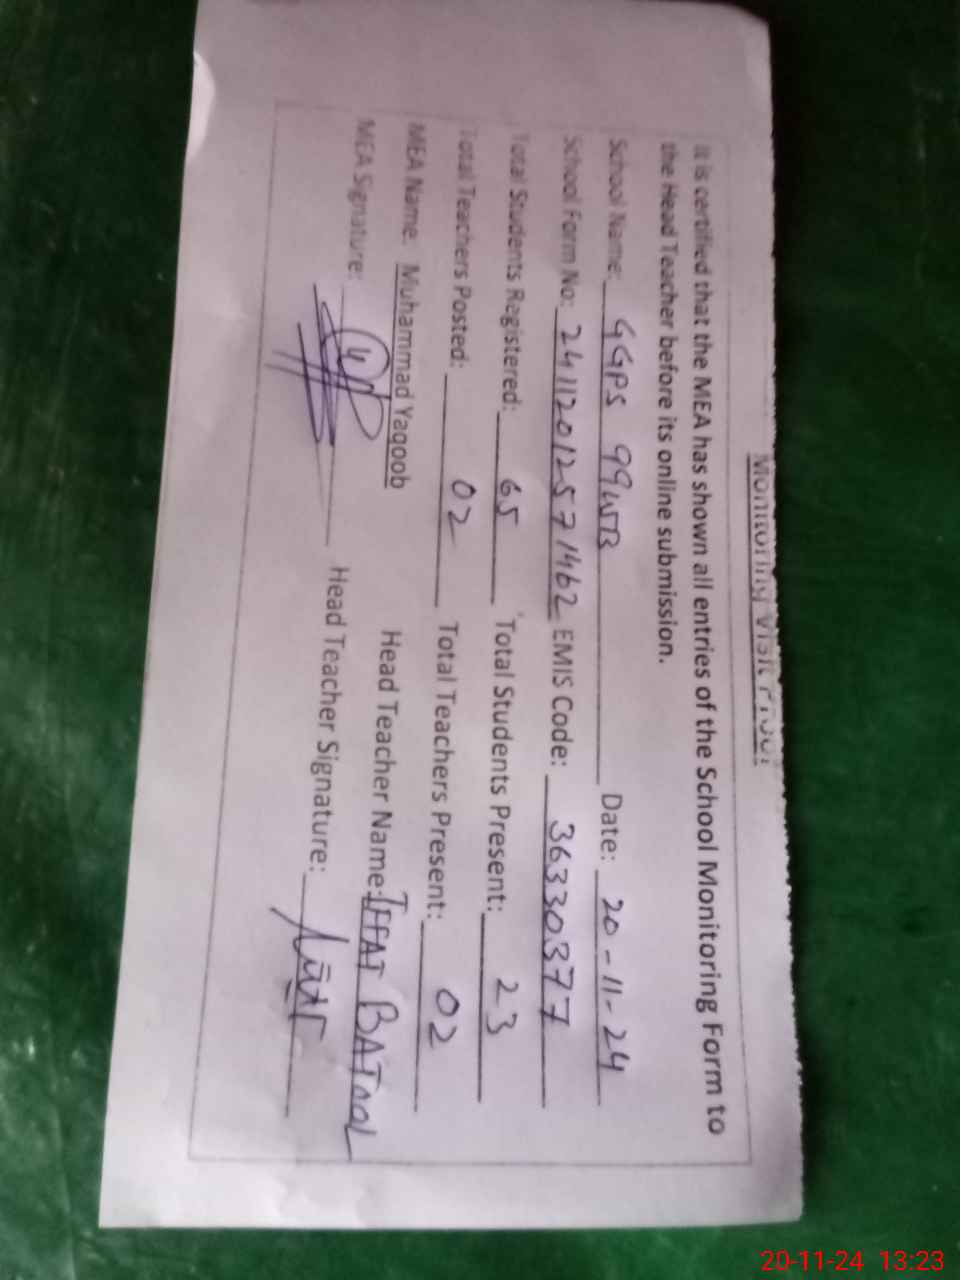 Monitoring Visit Proof
It is certified that the MEA has shown all entries of the School Monitoring Form to
the Head Teacher before its online submission.
School Name: GGPS 99WB Date: 20-11-24
School Form No: 241120125571462 EMIS Code: 36330377
Total Students Registered: 65 Total Students Present: 23
Total Teachers Posted: 02 Total Teachers Present: 02
MEA Name: Muhammad Yaqoob Head Teacher Name: IFFAT BATOOL
MEA Signature: Head Teacher Signature:
20-11-24 13:23